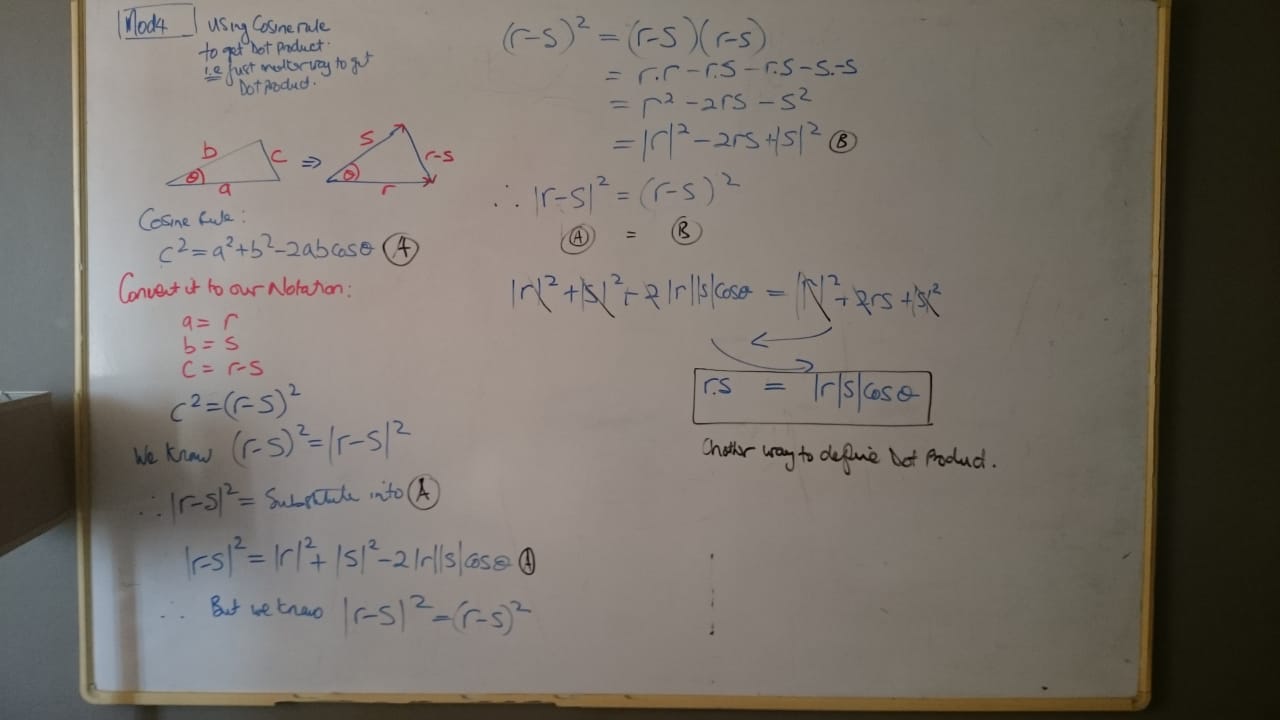 Mod4
Using Cosine rule
to get Dot Product.
i.e just another way to get
Dot Product.
b
c
θ
a
⇒
s
r-s
θ
r
Cosine Rule:
c² = a² + b² - 2abcosθ Ⓐ
Convert it to our Notation:
a = r
b = s
c = r-s
c² = (r-s)²
We know (r-s)² = |r-s|²
∴ |r-s|² = Substitute into Ⓐ
|r-s|² = |r|² + |s|² - 2|r||s|cosθ Ⓐ
∴ But we know |r-s|² = (r-s)²
(r-s)² = (r-s)(r-s)
= r.r - r.s - r.s - s.-s
= r² - 2rs - s²
= |r|² - 2rs + |s|² Ⓑ
∴ |r-s|² = (r-s)²
Ⓐ = Ⓑ
|r|² + |s|² - 2|r||s|cosθ = |r|² + 2rs + |s|²
r.s = |r|s|cosθ
Another way to define Dot Product.